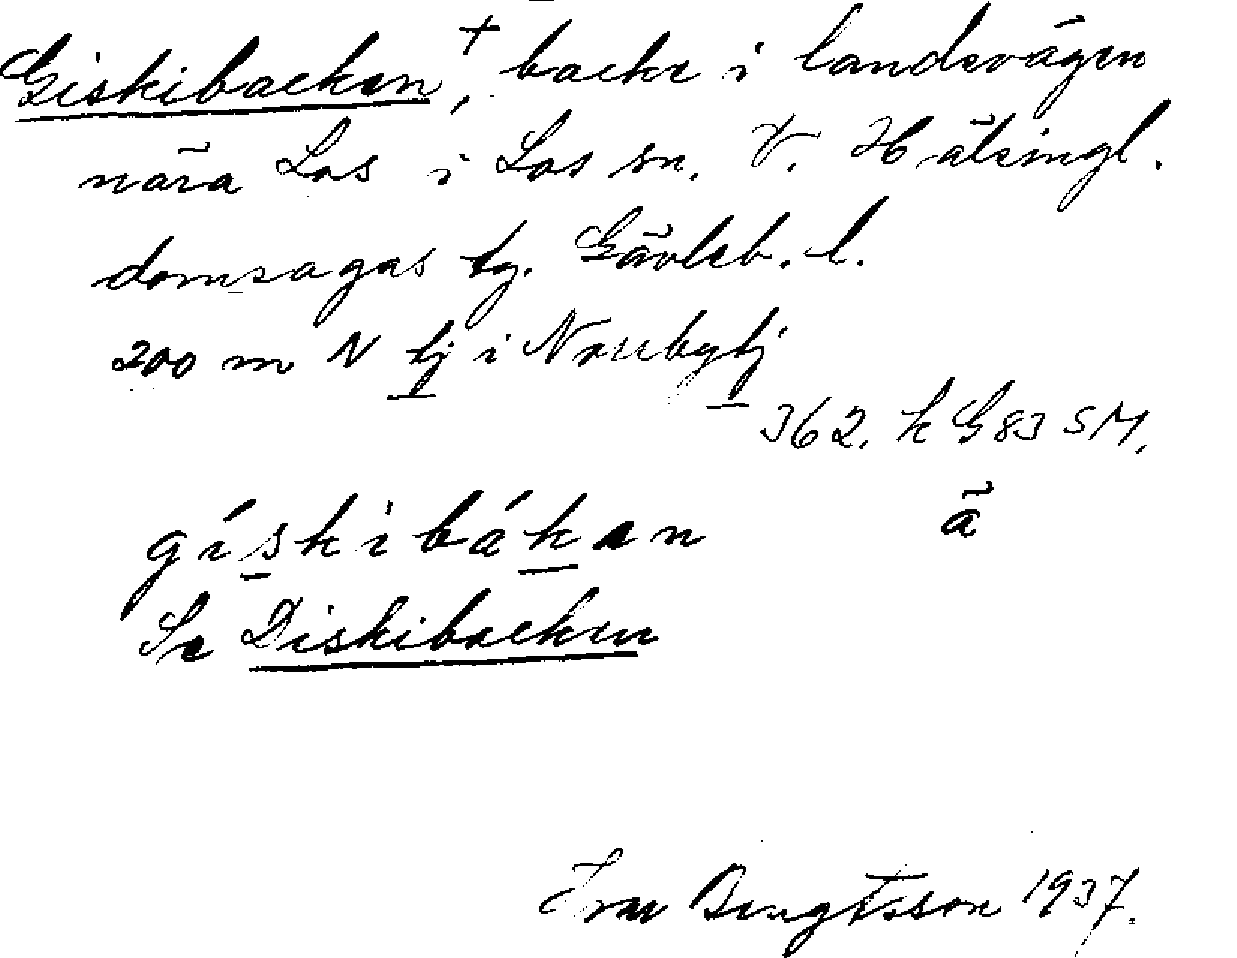 Giskibacken+, backe i landsvägen
nära Los i Los sn. V. Hälsingl.
domsagas tg. Gävleb. l.
200 m N tj i Norrbytj
362. k G 83 SM.
ä
gískibákan
Se Diskibacken
Bengtsson 1937.